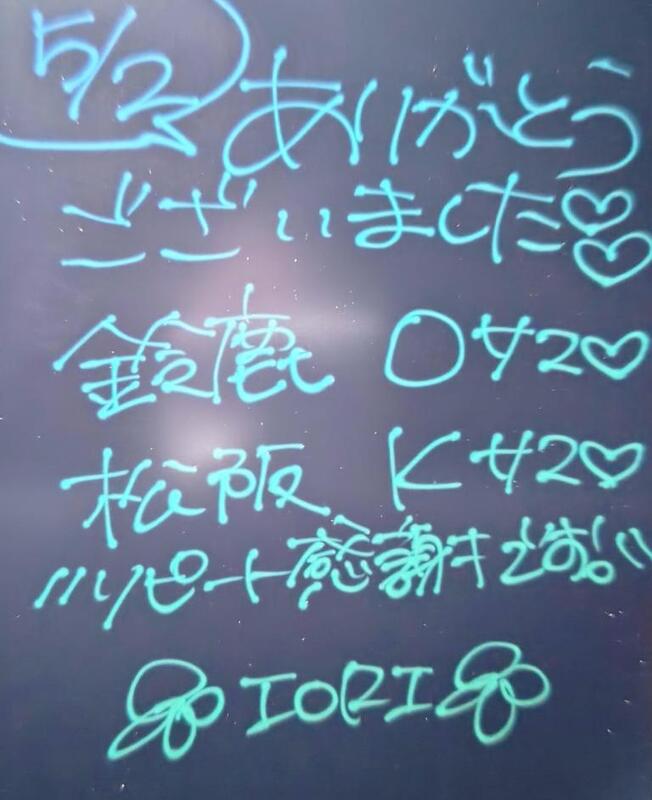 5/2 ありがとう
ございました♡♡
鈴鹿 Oサマ♡
松阪 Kサマ♡
リピート感謝キです!!
IORI